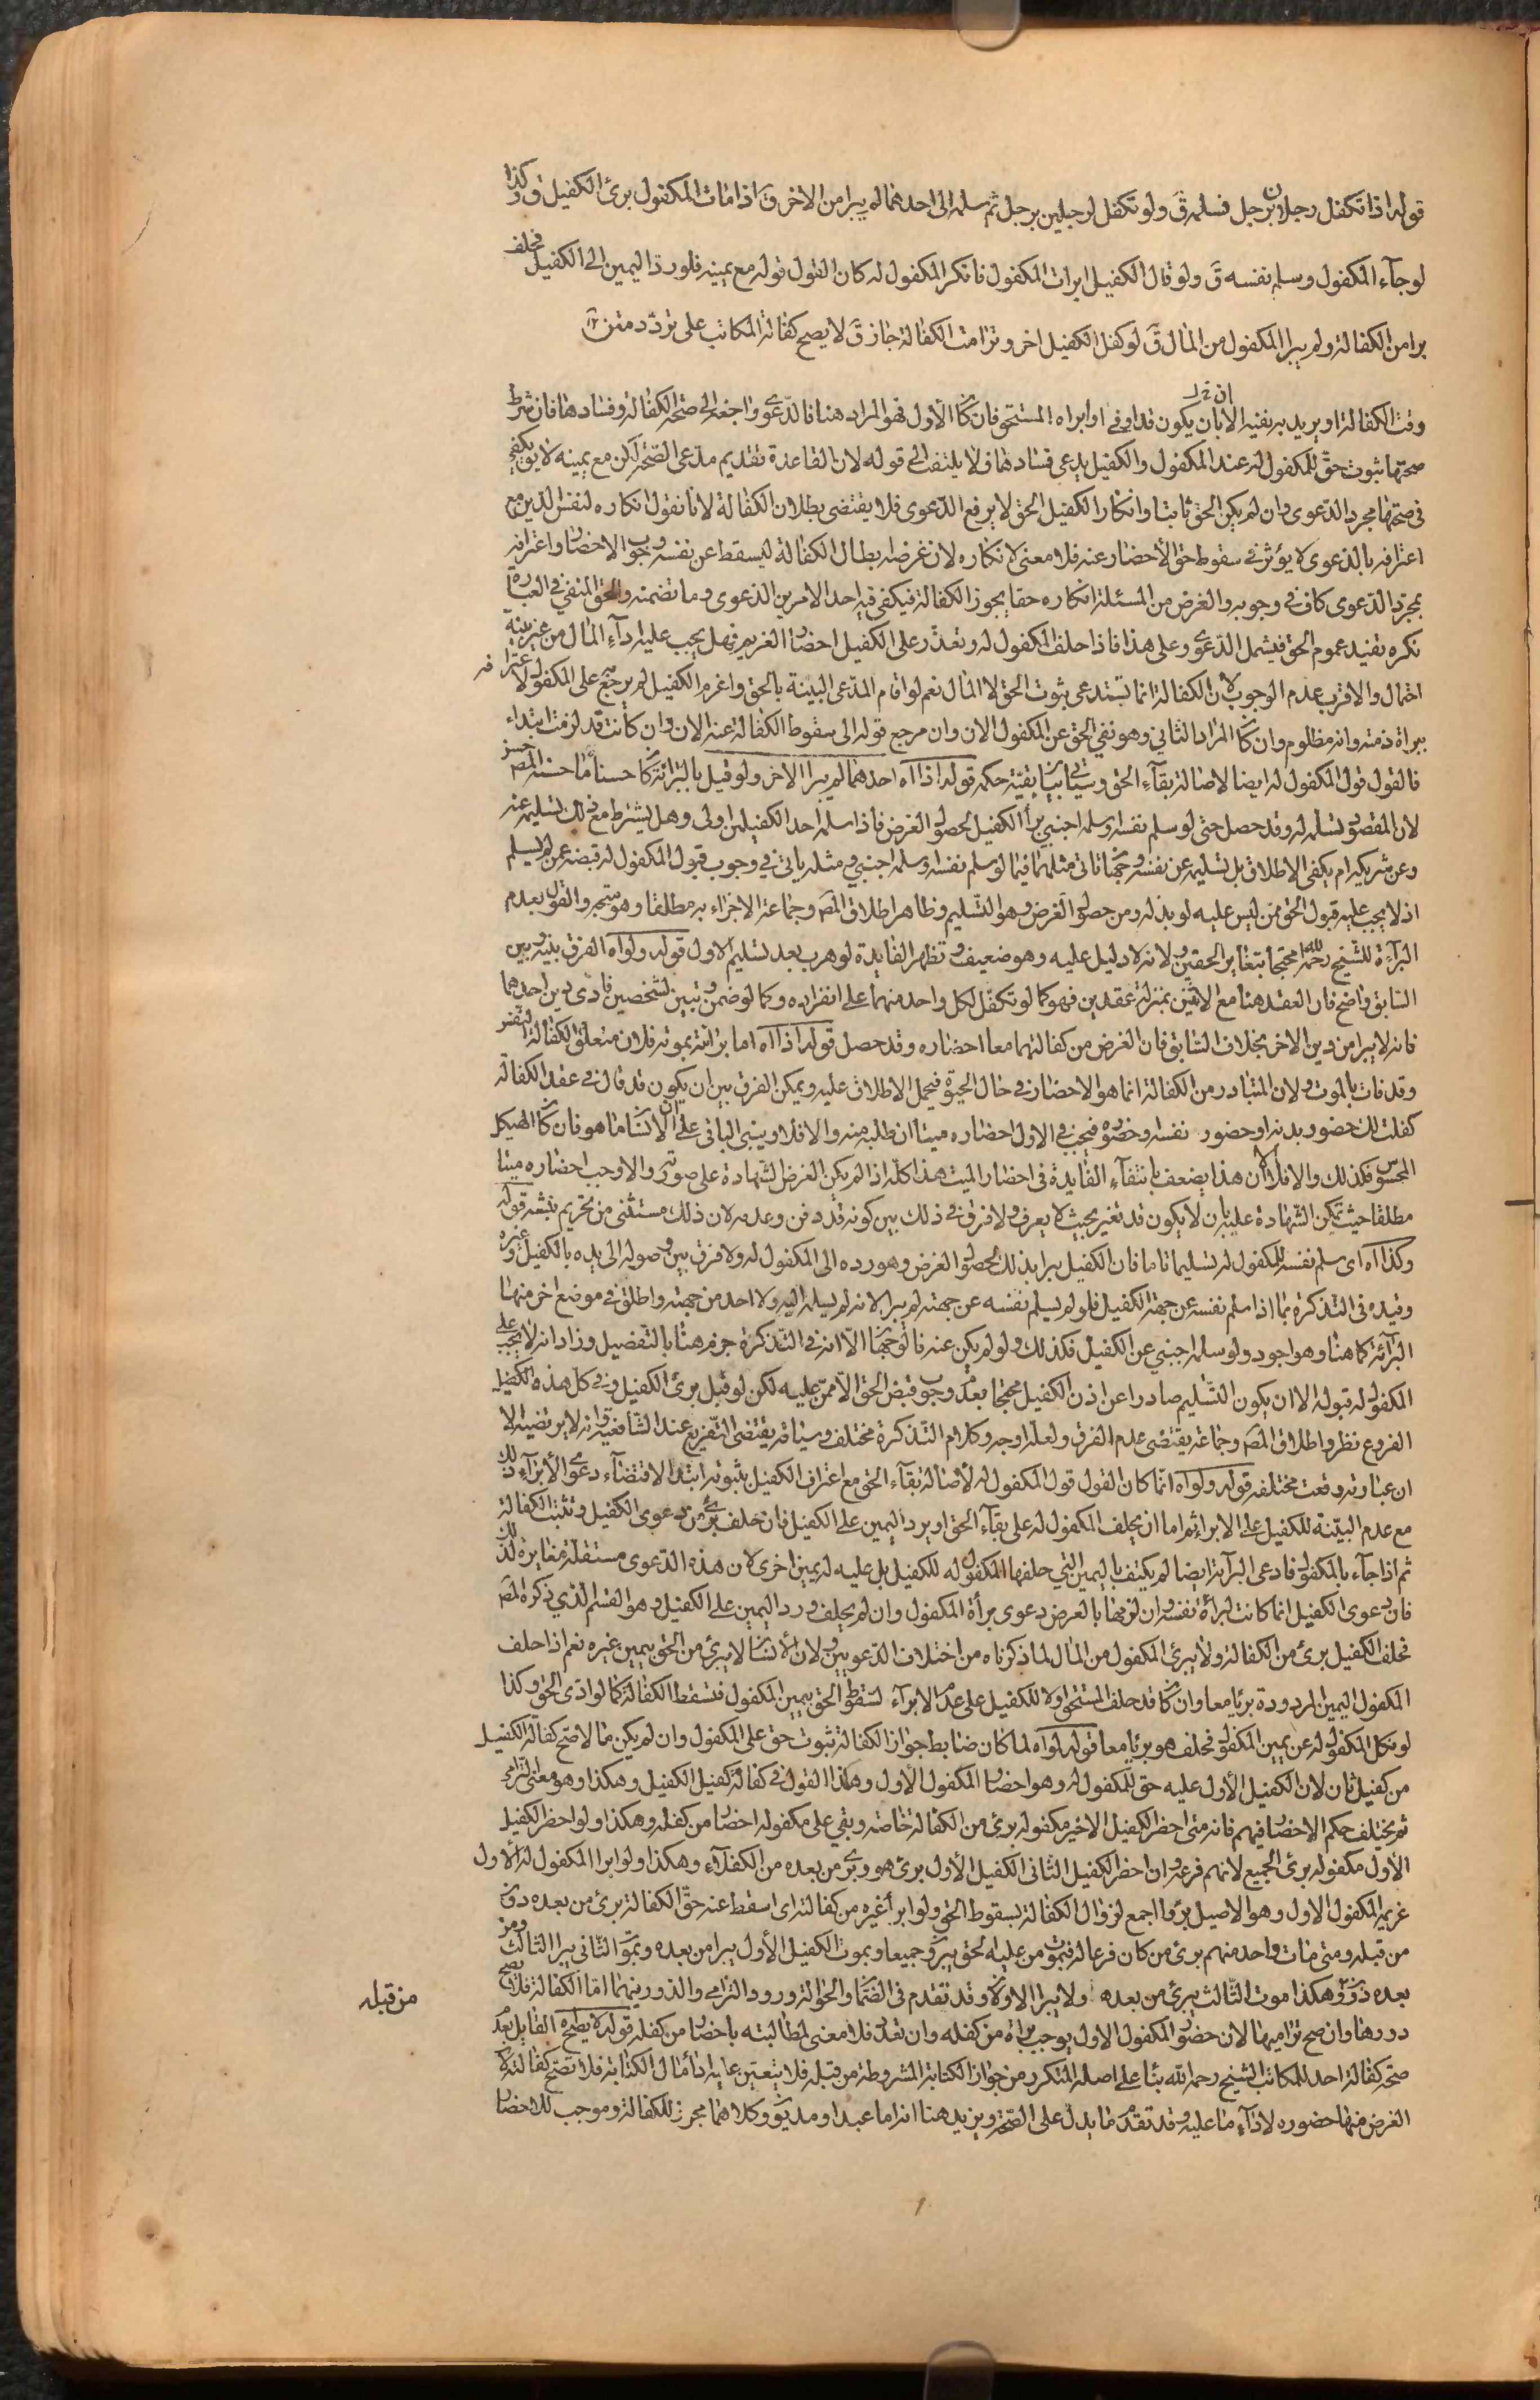 قوله اذا تكفل رجلان برجل فسلمه ق ولو تكفل لرجلين برجل ثم سلمه الى احدهما لم يبرا من الاخر ق اذا مات المكفول برئ الكفيل ق وكذا
لو جآء المكفول وسلم نفسه ق ولو قال الكفيل ابرات المكفول فانكر المكفول له كان القول قوله مع يمينه فلو رد اليمين الى الكفيل فحلف
برا من الكفالة ولم يبرا المكفول من المال ق لو كفل الكفيل اخر وترامت الكفالة جاز ق لا يصح كفالة المكاتب على تردد متن
وقت الكفالة او يريد به نفيه الان بان يكون قد اوفى او ابراه المستحق فان كان الاول فهو المراد هنا فالدعوى راجعة الى صحة الكفالة وفسادها فان شرط
صحتها ثبوت حق للمكفول له عند المكفول والكفيل يدعى فسادها فلا يلتفت الى قوله لان القاعدة تقديم مدعى الصحة لكن مع يمينه لا يق يكفى
فى صحتها مجرد الدعوى وان لم يكن الحق ثابتا وانكار الكفيل الحق لا يرفع الدعوى فلا يقتضى بطلان الكفالة لانا نقول انكاره لنفس الدين مع
اعترافه بالدعوى لا يؤثر فى سقوط حق الاحضار عنه فلا معنى لانكاره لان غرضه ابطال الكفالة ليسقط عن نفسه وجوب الاحضار واعترافه
بمجرد الدعوى كاف فى وجوبه والغرض من المسئلة انكاره حقا يجوز الكفالة فيكفى فيه احد الامرين الدعوى وما تضمنته والحق المنفى فى العبارة
نكره تفيد عموم الحق فيشمل الدعوى وعلى هذا فاذا حلف المكفول له وتعذر على الكفيل احضار الغريم فهل يجب عليه ادآء المال من غير بينة
احتمال والاقرب عدم الوجوب لان الكفالة انما تستدعى ثبوت الحق لا المال نعم لو اقام المدعى البينة بالحق واغرم الكفيل لم يرجع به على المكفول لاعترافه
ببراة ذمته وانه مظلوم وان كان المراد الثانى وهو نفى الحق عن المكفول الان وان مرجع قوله الى سقوط الكفالة عنه الان وان كانت قد لزمت ابتداء
فالقول قول المكفول له ايضا لاصالة بقآء الحق وسيأتى بيان بقية حكمه قوله اذا اه احدهما لم يبرا الاخر ولو قيل بالبرائة كان حسنا ما حسنه المصر حسن
لان المقصود تسلمه له وقد حصل حتى لو سلم نفسه او سلمه اجنبى برأ الكفيل لحصول الغرض فاذا سلمه احد الكفيلين اولى وهل يشترط مع ذلك تسليمه عنه
وعن شريكه ام يكفى الاطلاق بل تسليمه عن نفسه وجهان اتى مثلهما فيما لو سلم نفسه او سلمه اجنبى ومثله ياتى فى وجوب قبول المكفول له قبضه عن من لم يسلم
اذ لا يجب عليه قبول الحق ممن ليس عليه لو بذله ومن حصول الغرض وهو التسليم وظاهر اطلاق المصر وجماعة الاجزاء به مطلقا وهو متجه والقول بعدم
البرآءة للشيخ رحمه الله محتجا بتغاير الحقين ولانه لا دليل عليه وهو ضعيف وتظهر الفايدة لو هرب بعد تسليم الاول قوله ولو اه الفرق بينه وبين
السابق واضح فان العقد هنا مع الاثنين بمنزلة عقدين فهو كما لو تكفل لكل واحد منهما على انفراده وكما لو ضمن دينين لشخصين فادى دين احدهما
فانه لا يبرا من دين الاخر بخلاف السابق فان الغرض من كفالتهما معا احضاره وقد حصل قوله اذا اه اما برائته بموته فلان متعلق الكفالة النفس
وقد فات بالموت ولان المتبادر من الكفالة انما هو الاحضار فى حال الحيوة فيحمل الاطلاق عليه ويمكن الفرق بين ان يكون قد قال فى عقد الكفالة
كفلت لك حضور بدنه او حضور نفسه وحضوره فيجب فى الاول احضاره ميتا ان طلبه منه والا فلا ويبنى الباقى على ان الانسان ما هو فان كان الهيكل
المحسوس فكذلك والا فلا الا ان هذا يضعف بانتفآء الفايدة فى احضار الميت هذا كله اذا لم يكن الغرض الشهادة على صورته والا وجب احضاره ميتا
مطلقا حيث تمكن الشهادة عليه بان لا يكون قد تغير بحيث لا يعرف ولا فرق فى ذلك بين كونه قد دفن وعدمه لان ذلك مستثنى من تحريم نبشه قوله
وكذا اه اى سلم نفسه للمكفول له تسليما تاما فان الكفيل يبرا بذلك لحصول الغرض وهو رده الى المكفول له ولا فرق بين وصوله الى يده بالكفيل وغيره
وقيده فى التذكرة بما اذا سلم نفسه عن جهة الكفيل فلو لم يسلم نفسه عن جهته لم يبرا لانه لم يسلمه اليه ولا احد من جهته واطلق فى موضع اخر منها
البرآئة كما هنا وهو اجود ولو سلمه اجنبى عن الكفيل فكذلك ولو لم يكن عنه فالوجهان الا انه فى التذكرة جزم هنا بالتفصيل وزاد انه لا يجب على
المكفول له قبوله الا ان يكون التسليم صادرا عن اذن الكفيل محتجا بعدم وجوب قبض الحق الا ممن عليه لكن لو قبل برئ الكفيل وفى كل هذه الكفيل
الفروع نظر واطلاق المصر وجماعة يقتضى عدم الفرق ولعله اوجه وكلام التذكرة مختلف وسياقه يقتضى التفريع عند الشافعية وانه لا يرتضيه الا
ان عبارته وقعت مختلفه قوله ولو اه انما كان القول قول المكفول له لاصالة بقآء الحق مع اعتراف الكفيل بثبوته ابتدا لاقتضاء دعوى الابرآء ذلك
مع عدم البينة للكفيل على الابراء ثم اما ان يحلف المكفول له على بقآء الحق او يرد اليمين على الكفيل فان حلف برئ من دعوى الكفيل وتثبت الكفالة
ثم اذا جآء بالمكفول فادعى البرآئة ايضا لم يكتف باليمين التى حلفها المكفول له للكفيل بل عليه له يمين اخرى لان هذه الدعوى مستقلة مغايرة لتلك
فان دعوى الكفيل انما كانت لبرائة نفسه وان لزمها بالعرض دعوى برأة المكفول وان لم يحلف ورد اليمين على الكفيل وهو القسم الذى ذكره المصر
فحلف الكفيل برئ من الكفالة ولا يبرئ المكفول من المال لما ذكرناه من اختلاف الدعويين ولان الانسان لا يبرئ من الحق بيمين غيره نعم اذا حلف
المكفول اليمين المردودة برئا معا وان كان قد حلف المستحق اولا للكفيل على عدم الابرآء لسقوط الحق بيمين المكفول فتسقط الكفالة كما لو ادى الحق وكذا
لو نكل المكفول له عن يمين المكفول فحلف هو برئا معا قوله لو اه لما كان ضابط جواز الكفالة ثبوت حق على المكفول وان لم يكن مالا صح كفالة الكفيل
من كفيل ثان لان الكفيل الاول عليه حق للمكفول له وهو احضار المكفول الاول وهكذا القول فى كفالة كفيل الكفيل وهكذا وهو معنى الترامى
ثم يختلف حكم الاحضار فيهم فانه متى احضر الكفيل الاخير مكفوله برئ من الكفالة خاصة وبقى على مكفوله احضار من كفله وهكذا ولو احضر الكفيل
الاول مكفوله برئ الجميع لانهم فرعه وان احضر الكفيل الثانى الكفيل الاول برئ هو وبرئ من بعده من الكفلاء وهكذا ولو ابرا المكفول له الاول
غريمه المكفول الاول وهو الاصيل برؤا اجمع لزوال الكفالة بسقوط الحق ولو ابرأ غيره من كفالته اى اسقط عنه حق الكفالة برئ من بعده دون
من قبله ومتى مات واحد منهم برئ من كان فرعا له فبموت من عليه الحق يبرؤ جميعا وبموت الكفيل الاول يبرا من بعده وبموت الثانى يبرا الثالث ومن
بعده دونه وهكذا موت الثالث يبرئ من بعده ولا يبرا الاولان وقد تقدم فى الضمان والحوالة ورود الترامى والدور فيهما اما الكفالة فلا يصح
دورها وان صح تراميها لان حضور المكفول الاول يوجب براة من كفله وان تعدد فلا معنى لمطالبته باحضار من كفله قوله لا يصح اه القايل بعدم
صحة كفالة احد للمكاتب الشيخ رحمه الله بنآء على اصله المتكرر من جواز الكتابة المشروطة من قبله فلا يتعين عليه ادآء مال الكتابة فلا تصح كفالته لان
الغرض منها حضوره لاداء ما عليه وقد تقدم ما يدل على الصحة ويزيد هنا انه اما عبد او مديون وكلاهما مجوز للكفالة وموجب للاحضار
من قبله